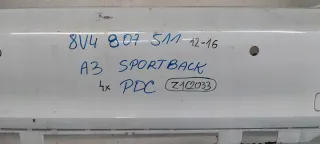 8V4 807 511 12-16
A3 SPORTBACK
4x PDC Z1C2033